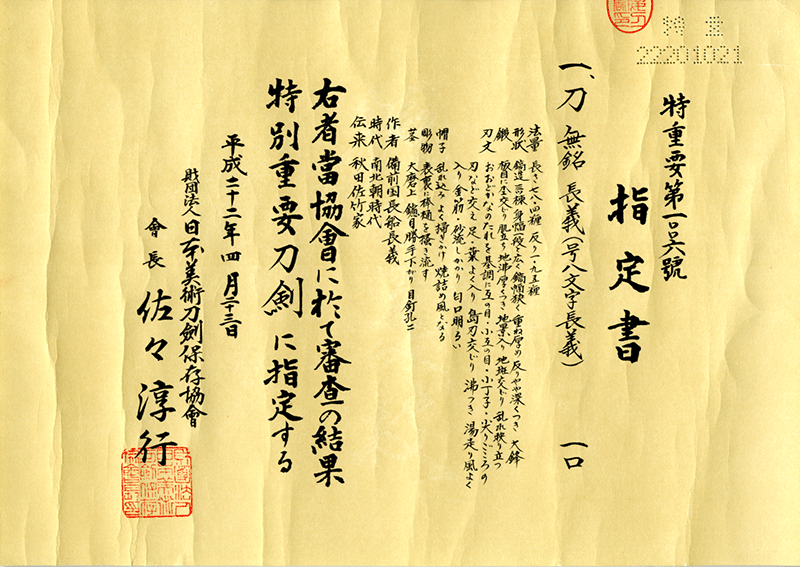 特重
22201021
特重要第一〇六號
指定書
一、刀 無銘 長義(号八文字長義) 一口
法量 長さ七八・四糎 反り一・九五糎
形状 鎬造 三棟 身幅一段と広く 鎬幅狭く 重ね厚め 反りやや深くつき 大鋒
鍛 板目に杢交じり 肌立ち 地沸厚くつき 地景入り 地斑交じり 乱れ映り立つ
刃文 おおどかなのたれを基調に互の目・小互の目・小丁子・尖りごころの
刃など交え 足・葉よく入り 島刃交じり 沸つき 湯走り風よく
入り 金筋・砂流しかかり 匂口明るい
帽子 乱れ込み よく掃きかけ 焼詰め風となる
彫物 表裏に棒樋を掻き流す
茎 大磨上 鑢目勝手下がり 目釘孔二
作者 備前国長船長義
時代 南北朝時代
伝来 秋田佐竹家
右者當協會に於て審査の結果
特別重要刀剣に指定する
平成二十二年四月二十三日
財団法人日本美術刀劍保存協會
會長 佐々淳行